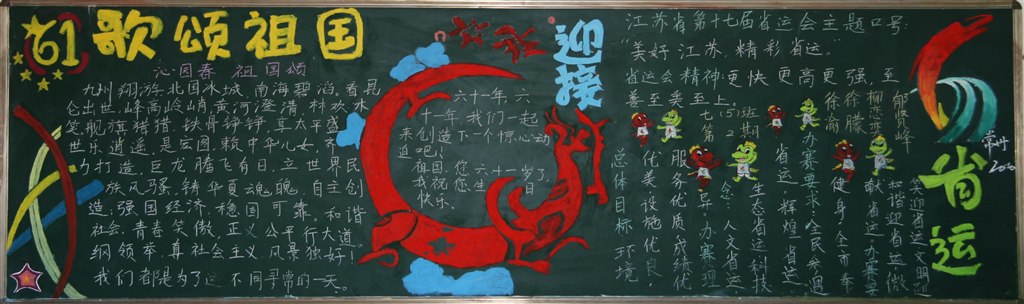 61
歌颂祖国
沁园春 祖国颂
九州翔游,北国冰城,南海碧滔。看昆
仑出世,峰高岭峭,黄河澄清,林欢水
笑,舰旗猎猎,铁骨铮铮,享太平盛
世乐逍遥。是宏图,赖中华儿女,齐
力打造。巨龙腾飞有日,立世界民
族风骚,铸华夏魂魄,自主创
造,强国经济,稳固可靠,和谐
社会,青春笑傲,正义公平行大道。
纲领举,真社会主义,风景独好!
我们都是为了这不同寻常的一天。
六十一年,六
十一年,我们一起
来创造下一个惊心动
道吧!
祖国,您六十一岁了,
我祝您生日
快乐.
迎接
江苏省第十七届省运会主题口号:
“美好江苏 精彩省运。
省运会精神:更快更高更强,至
善至美至上。
总体目标:环境
优美、设施优良、
服务优质、成绩优
七(5)班
第2期
生态省运、科技
省运、人文省运
省运、辉煌省运
办赛要求:全民参与
健身、全市奉
献省运、办赛
和谐迎省运
笑迎省运、文明
徐渝
徐朦
郁峻峰
省运
常州
2010